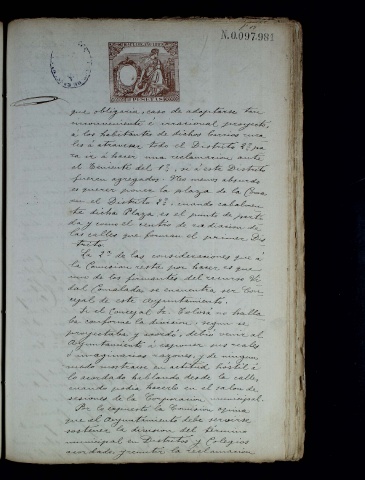 N.0.097.981
que obligaria, caso de adoptarse tan
inconveniente é irracional proyecto,
á los habitantes de dichos barrios rura
les á atravesar todo el Distrito 2º pa
ra ir á hacer una reclamacion ante
el Teniente del 1º, si á este Distrito
fueren agregados. No menos absurdo
es querer poner la plaza de la Cons
en el Distrito 2º, cuando cabalmen
te dicha Plaza es el punto de parti
da y como el centro de radiacion de
las calles que forman el primer Dis
trito.
La 2ª de las consideraciones que á
la Comision resta por hacer es que
uno de los firmantes del recurso Vi
dal, Consolado, se encuentra ser Con
cejal de este Ayuntamiento.
Si el Concejal Sr. no halla
ba conforme la division, segun se
proyectaba y acordó, debió venir al
Ayuntamiento á exponer sus reales
ó imaginarias razones, y de ningun
modo mostrarse en actitud hostil á
lo acordado hablando desde la calle,
cuando podia hacerlo en el salon de
sesiones de la Corporacion municipal.
Por lo expuesto la Comision opina
que el Ayuntamiento debe servirse
sostener la division del término
municipal en Distritos y Colegios
acordada y remitir la reclamacion